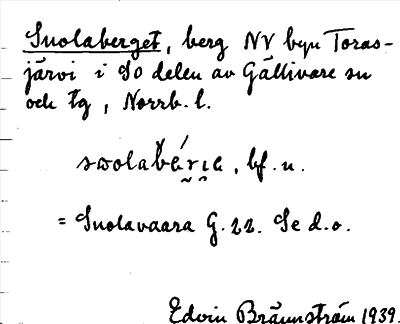 Suolaberget, berg NV byn Toras-
järvi i SO delen av Gällivare sn
och tg, Norrb. l.
bf. u.
= Suolavaara G. 22. Se d.o.
Edvin Brännström 1939.